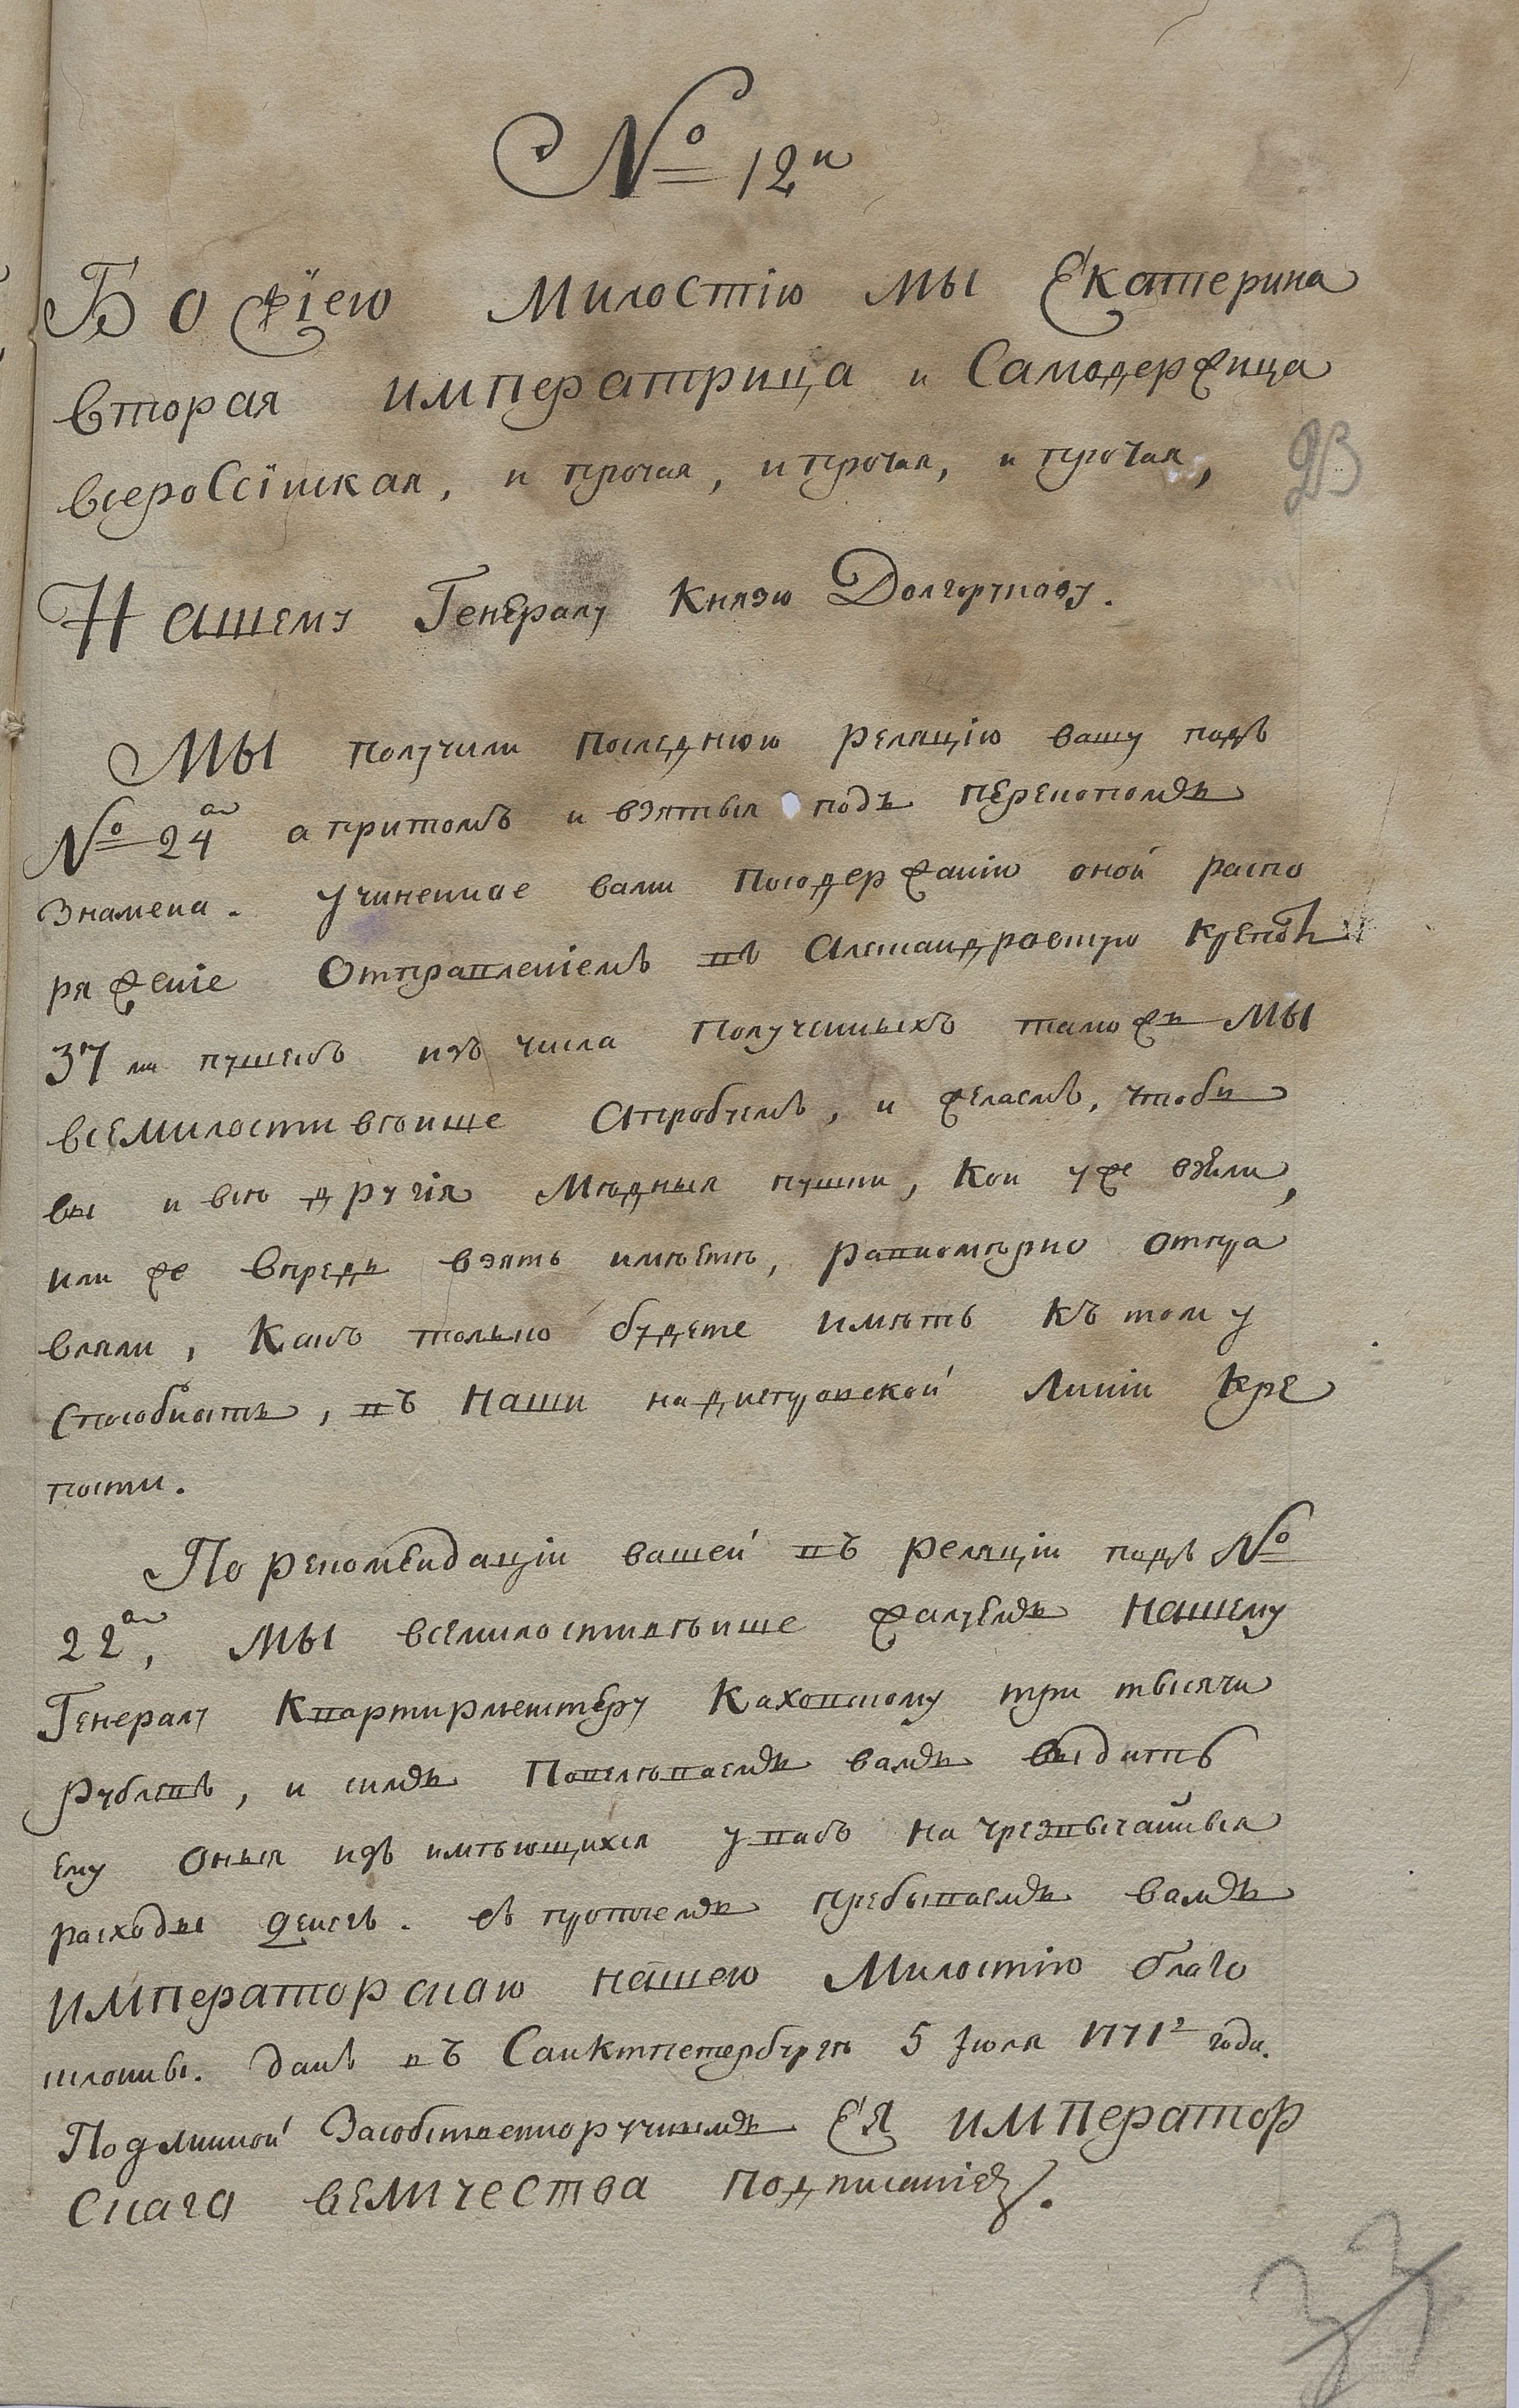 № 12й
Божїею милостїю мы Екатерина
вторая императрица и самодержица
всеросс̈їиская, и прочая, и прочая, и прочая,
23
Нашему Генералу Князю Долгорукову.
Мы получили последнюю реляцїю вашу подъ
№ 24а а притомъ и взятыя подъ перекопомъ
знамена. учиненное вами посодержанїю оной распо
ряженїе отправленїемъ въ Александровскую крепость
37ми пушекъ изъ числа полученныхъ таможъ мы
всемилостивѣише апробуемъ, и желаемъ, чтобъ
вы и всѣ другїя мѣдныя пушки, кои уже взяли,
или же впредь взять имѣете, равномѣрно отпра
вляли, какъ только будете имѣть къ тому
способность, въ наши на днепровской линїи кре
пости.
По рекомендацїи вашей въ реляцїи подъ №
22а, мы всемилостивѣише жалуемъ нашему
Генералу Квартирмейстеру Каховскому три тысячи
рублевъ, и симъ повелѣваемъ вамъ выдать
ему оныя изъ имѣющихся у васъ на чрезвычайныя
расходы денегъ. въ протчемъ пребываемъ вамъ
императорскою нашею милостїю благо
склонны. данъ въ Санктпетербургѣ 5 Іюля 1771г года.
Подлинной засобственноручнымъ Ея император
скаго величества подписанїемъ.
33